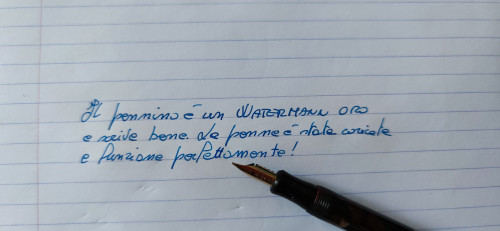 Il pennino è un WATERMANN ORO
e scrive bene. La penna è stata caricata
e funziona perfettamente!